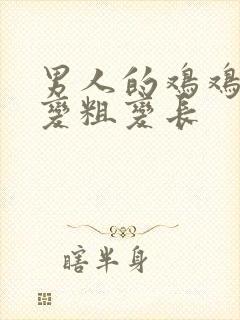 男人的鸡鸡
变粗变长
瞎半身